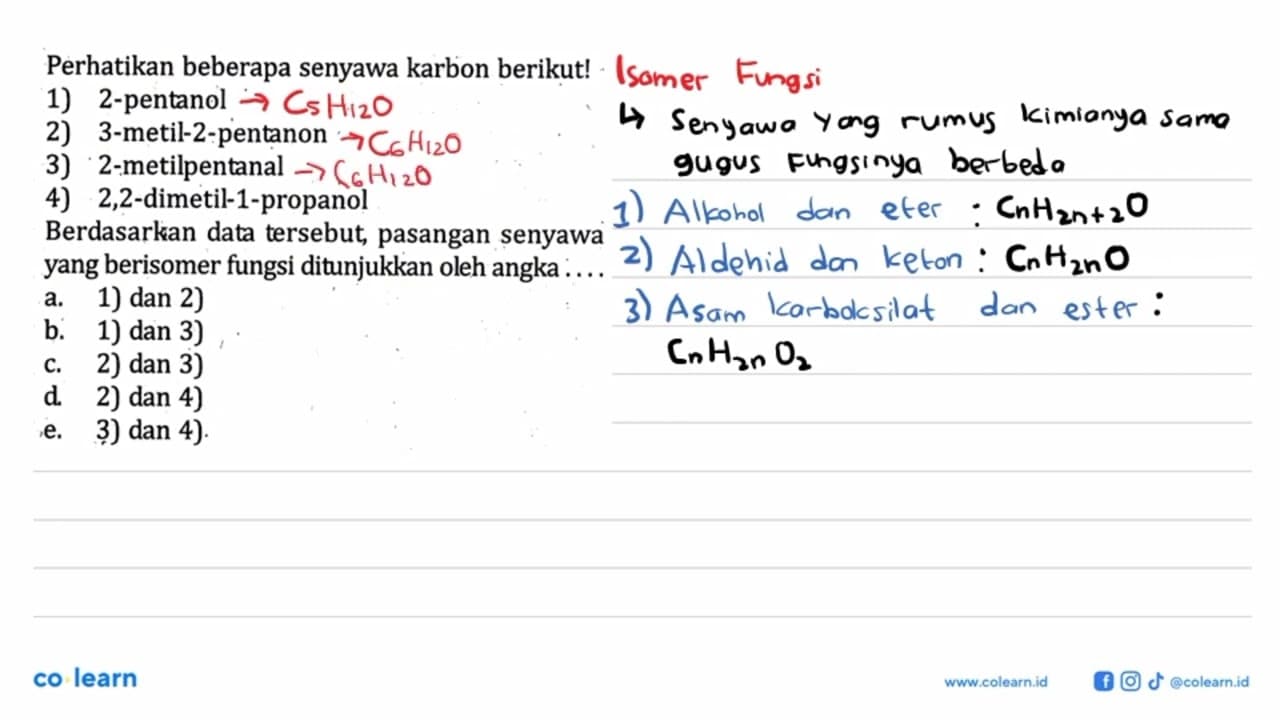 Perhatikan beberapa senyawa karbon berikut!
1) 2-pentanol → C5H12O
2) 3-metil-2-pentanon → C6H12O
3) 2-metilpentanal → C6H12O
4) 2,2-dimetil-1-propanol
Berdasarkan data tersebut, pasangan senyawa
yang berisomer fungsi ditunjukkan oleh angka ....
a. 1) dan 2)
b. 1) dan 3)
c. 2) dan 3)
d. 2) dan 4)
e. 3) dan 4).
Isomer Fungsi
↳ Senyawa yang rumus kimianya sama
gugus Fungsinya berbeda
1) Alkohol dan eter : CnH2n+2O
2) Aldehid dan keton : CnH2nO
3) Asam karboksilat dan ester :
CnH2nO2
co learn
www.colearn.id
@colearn.id